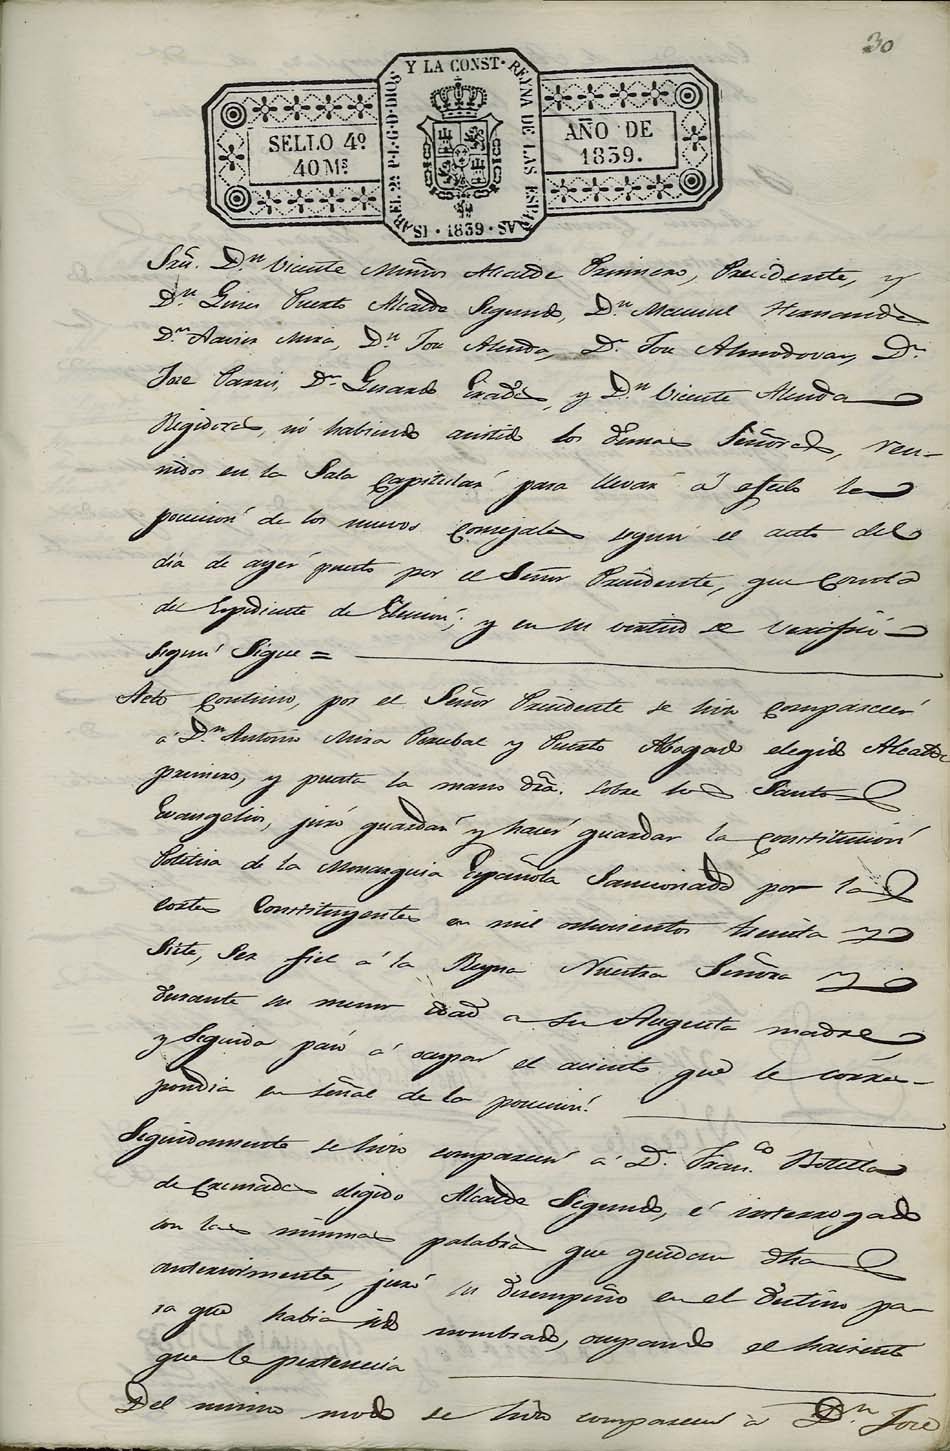 30
ISABEL 2ª P.L.G.D. DIOS Y LA CONST. REYNA DE LAS ESPAÑAS · 1839 ·
SELLO 4º
40 Mˢ
AÑO DE
1839.
Srũ. Dⁿ Vicente Alcalde Primero, Precidente, y
Dⁿ Gines Puerto Alcalde Segundo, Dⁿ Manuel Hernandes
Dⁿ Xavier Mira, Dⁿ Jose Alenda, Dⁿ Jose Almodovar, Dⁿ
Jose Dⁿ Gerardo y Dⁿ Vicente Alenda
Regidores, nó habiendo asistido los demas Señores, reu-
nidos en la Sala Capitular para llevar á efecto la
pocecion de los nuevos Consejales segun el auto del
dia de ayer puesto por el Señor Precidente, que Consta
del Expediente de Elecion; y en su virtud se verificó
segun Sigue =
Acto Continuo, por el Señor Precidente se hizo comparecer
á Dⁿ Antonio Mira Percebal y Puerto Abogado elegido Alcalde
primero, y puesta la mano dr̃a. sobre los Santos
Evangelios, juró guardar y hacer guardar la Constitucion
Politica de la Monarquia Española Sancionada por las
cortes Constituyentes en mil ochocientos treinta y
Siete, Ser fiel á la Reyna Nuestra Señora y
durante su menor edad a su Augusta madre
y Seguida pasó á ocupar el aciento que le corres-
pondia en señal de la pocecion.
Seguidamente se hizo comparecer á Dⁿ Franᶜᵒ Botella
de elegido Alcalde Segundo, é interrogado
con las mismas palabras que quedan dhas
anteriormente, juró su desempeño en el Destino pa-
ra que habia sido nombrado, ocupando el haciento
que le pertenecia
Del mismo modo se hizo comparecer á Dⁿ Jose